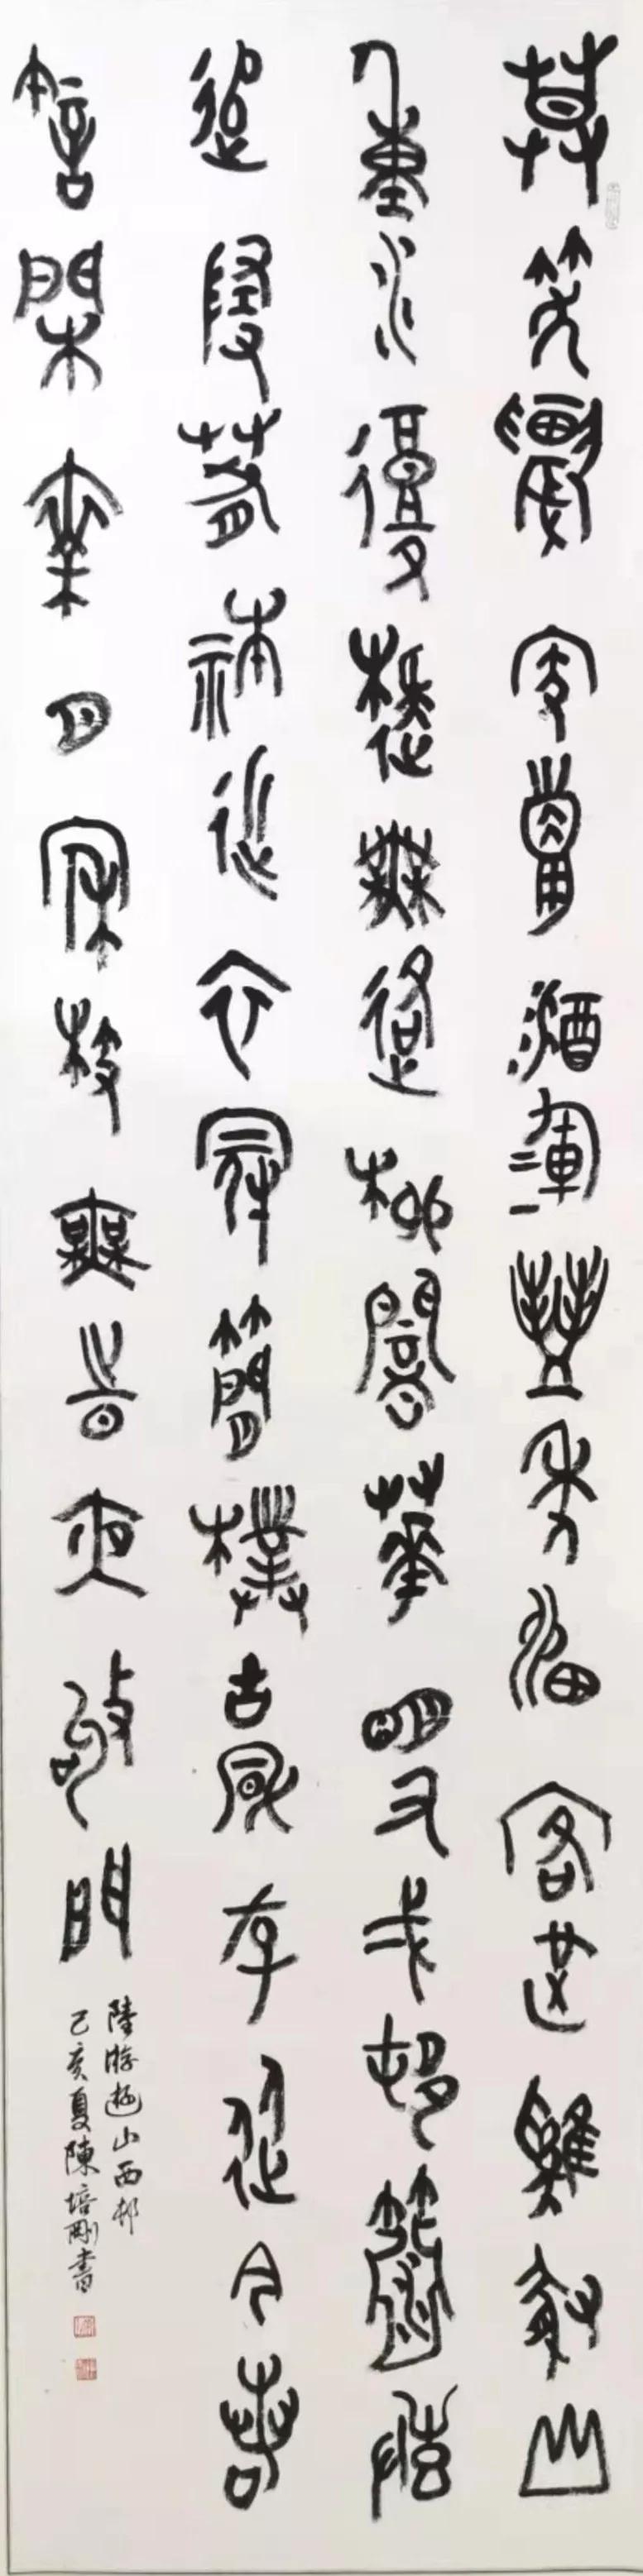 莫笑農家臘酒渾豐年留客足雞豚山
重水復疑無路柳暗華明又一邨簫鼓
追隨春社近衣冠簡樸古風存從今若
許閑乘月拄杖無時夜叩門
陸游遊山西邨
己亥夏陳培剛書